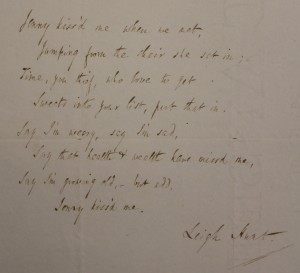 Jenny kiss'd me when we met,
Jumping from the chair she sat in;
Time, you thief, who love to get
Sweets into your list, put that in:
Say I'm weary, say I'm sad,
Say that health & wealth have miss'd me,
Say I'm growing old, - but add,
Jenny kiss'd me.
Leigh Hunt.